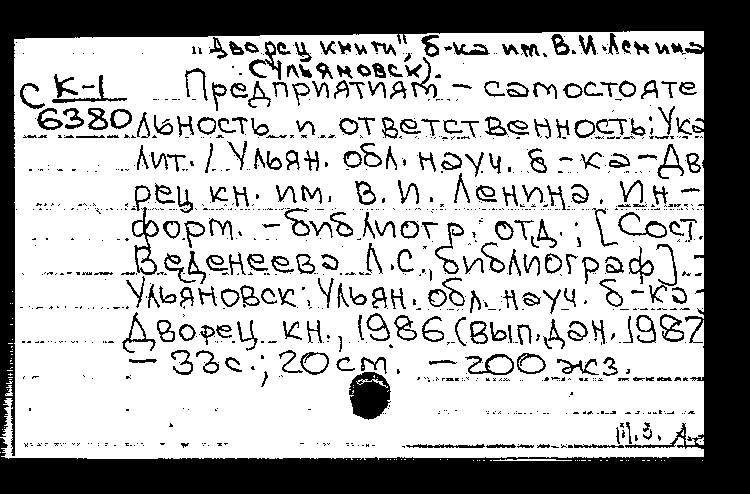 "Дворец книги", б-ка им. В.И. Ленина
(Ульяновск).
С К-1 Предприятиям - самостояте
6380 льность и ответственность: Ука
лит. / Ульян. обл. науч. б-ка - Дв
рец кн. им. В.И. Ленина. Ин-
форм. - библиогр. отд.; [Сост.
Веденеева Л.С., библиограф]. -
Ульяновск: Ульян. обл. науч. б-ка -
Дворец кн., 1986 (вып. дан. 1987
- 33с.; 20 см. - 200 экз.